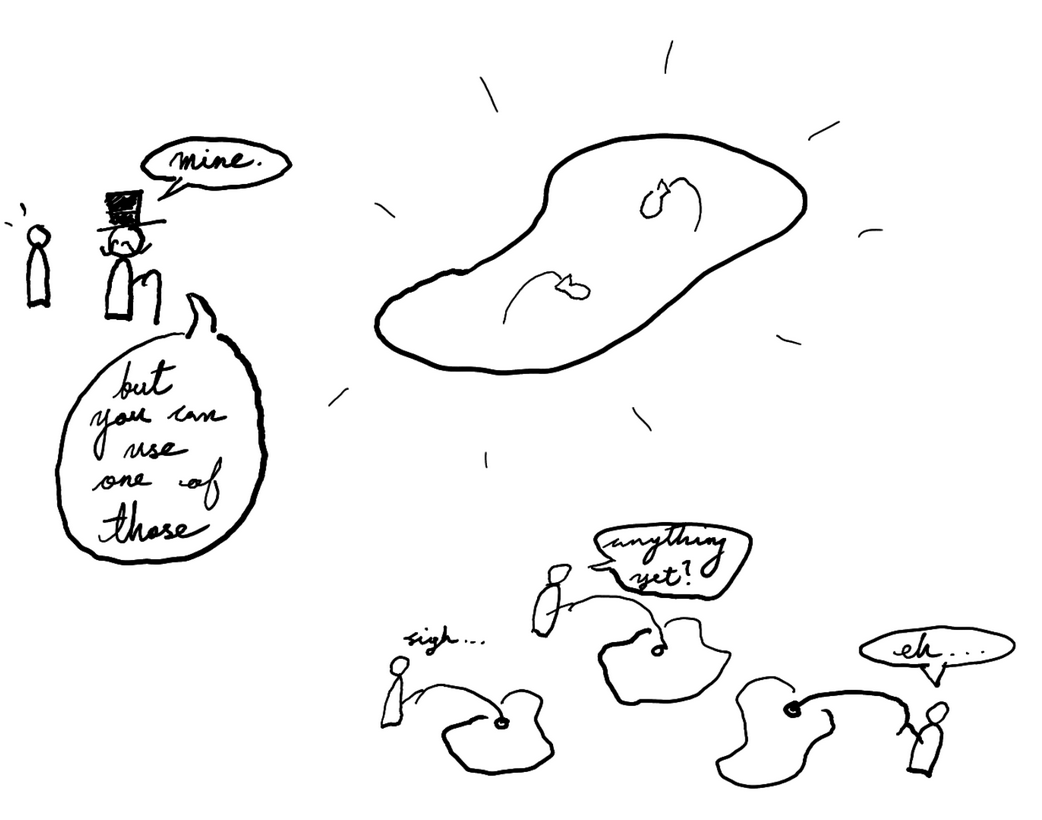 mine.
but
you can
use
one of
those
anything
yet?
sigh...
eh...